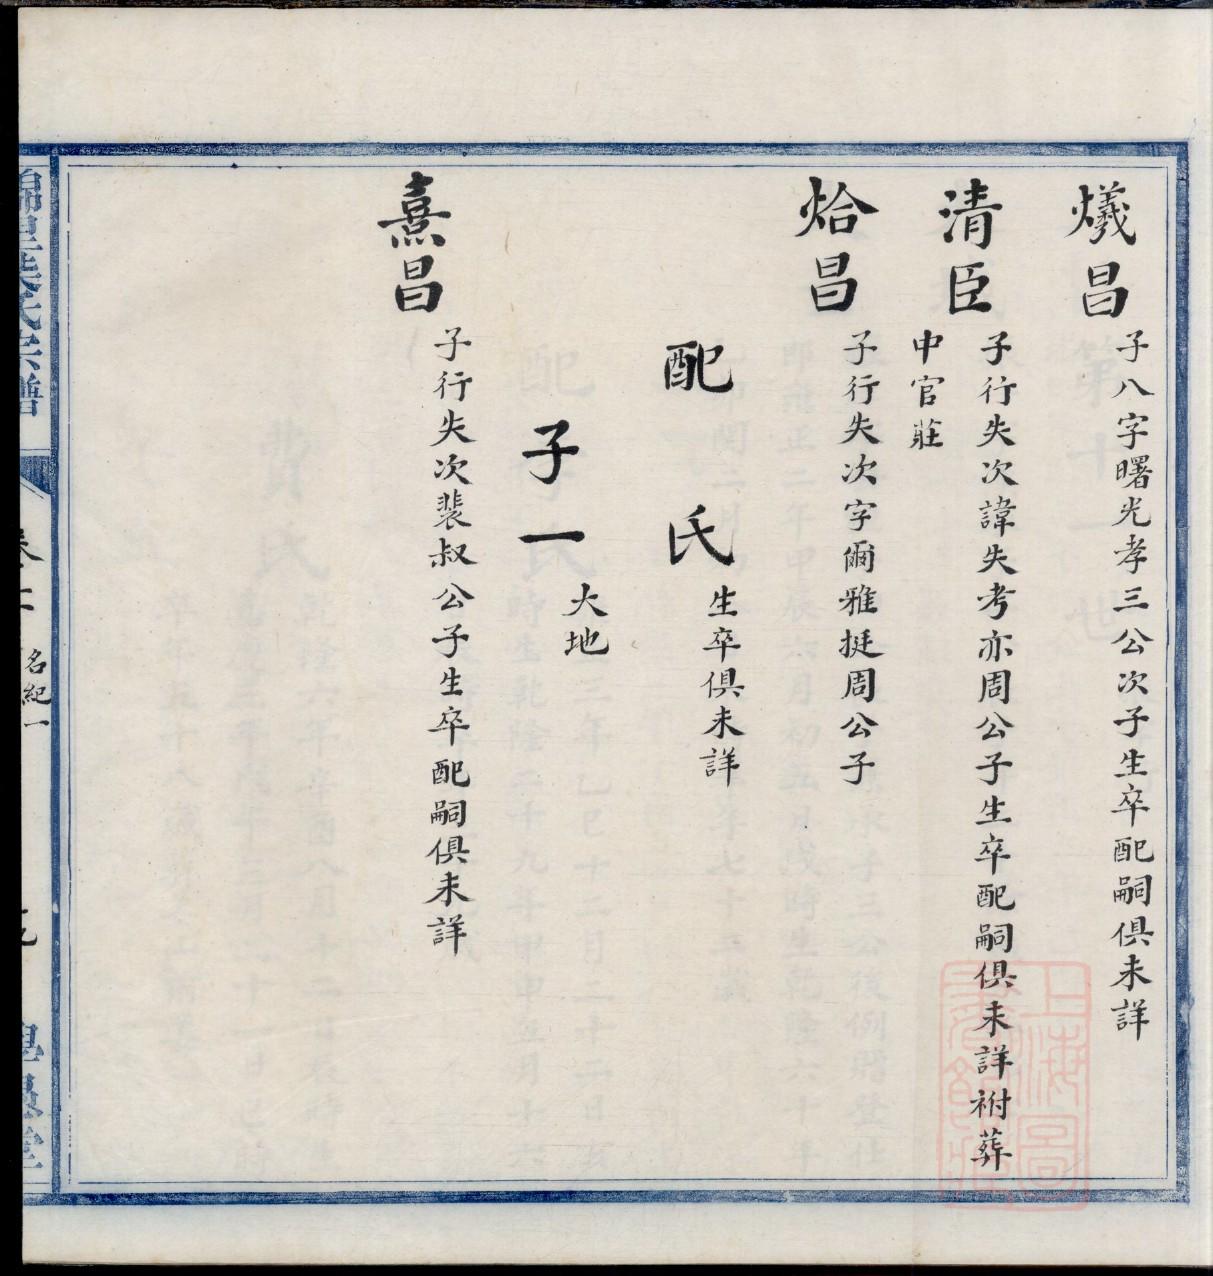 爔昌
子八字曙光孝三公次子生卒配嗣俱未詳
清臣
子行失次諱失考亦周公子生卒配嗣俱未詳祔葬
中官莊
烚昌
子行失次字爾雅挺周公子
配氏
生卒俱未詳
子一
大地
熹昌
子行失次裴叔公子生卒配嗣俱未詳
氏宗譜
名紀一